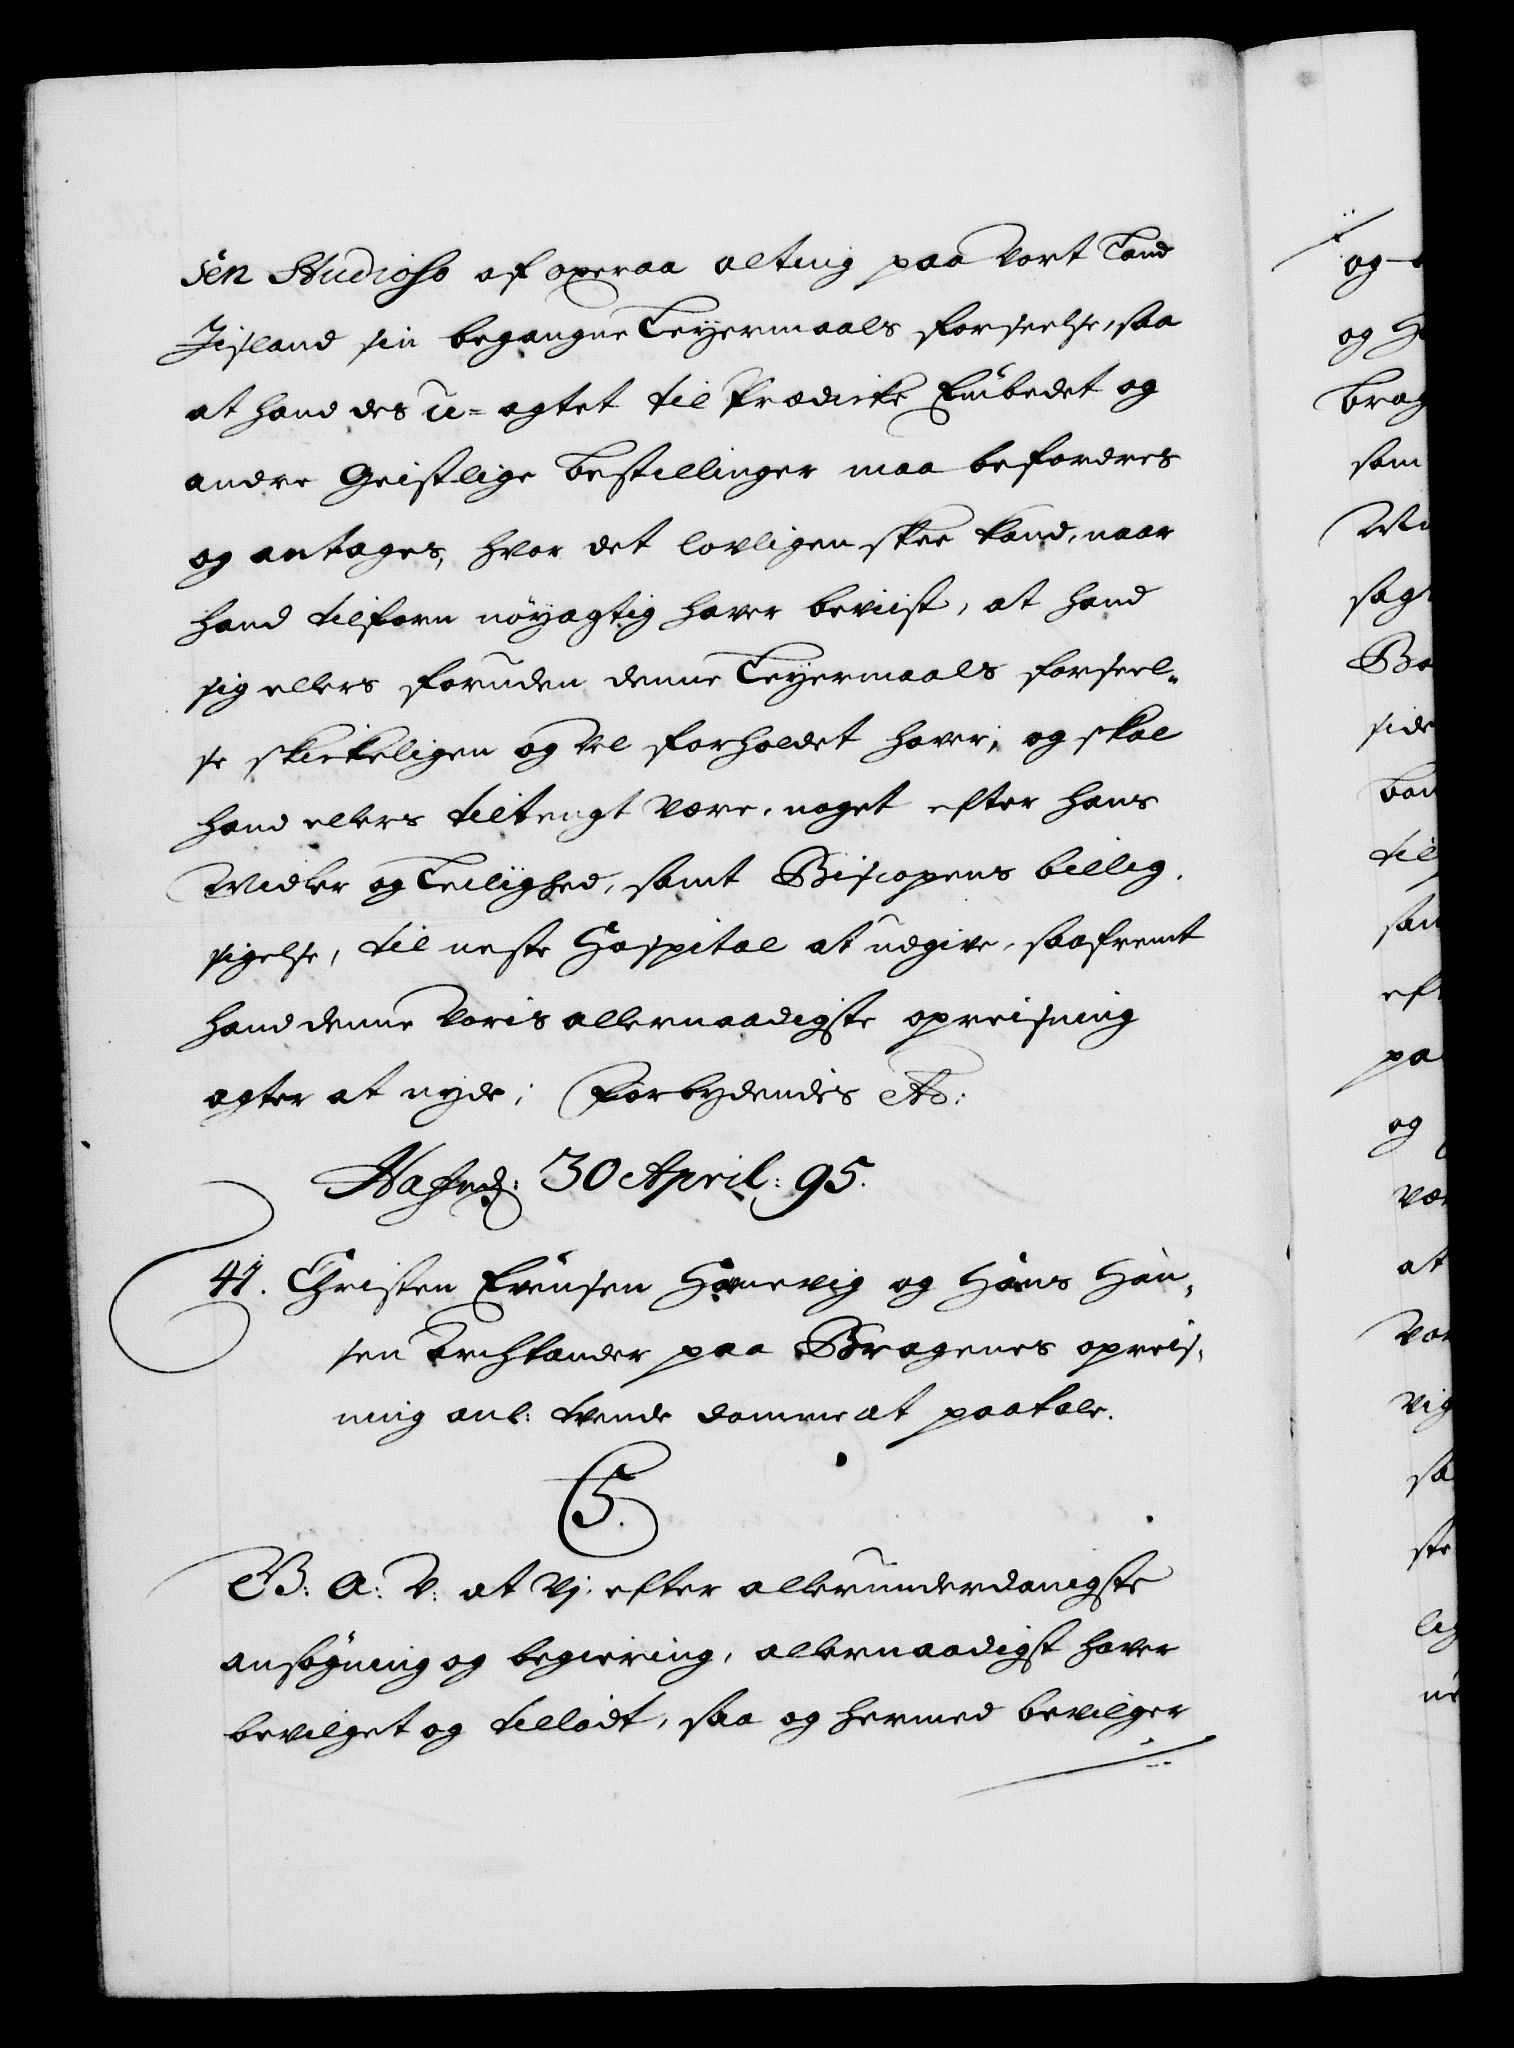 sen Studioso af operaa alting paa Vort Land
Jisland sin begangne Leyermaals forseelse, saa
at hand des u=agtet til Prædicke Embedet og
andre Geistlige bestillinger maa befordres
og antages, hvor det lovligen skee kand, naar
hand tilforn nöyagtig haver beviist, at hand
sig ellers foruden denne Leyermaals forseel-
se skickeligen og vel forholdet haver; og skal
hand ellers tiltengt være, noget efter hans
Midler og Leilighed, samt Biscopens billig
sigelse, til neste Hospital at udgive, saafremt
hand denne Voris allernaadigste opreisning
agter at nyde; Forbydendis etc:
Hafn: 30 April: 95.
41. Christen Evensen Hannevig og Hans Han-
sen paa Bragenes opreis-
ning anl: tvende domme at paatale.
C5.
G: A: V: at Vj efter allerunderdanigste
ansögning og begiering, allernaadigst haver
bevilget og tilladt, saa og hermed bevilger
og
og H
brag
som
Vi
sagt
Bo
side
til
sam
eft
paa
og
væ
at
Vor
vig
sa
ste
lig